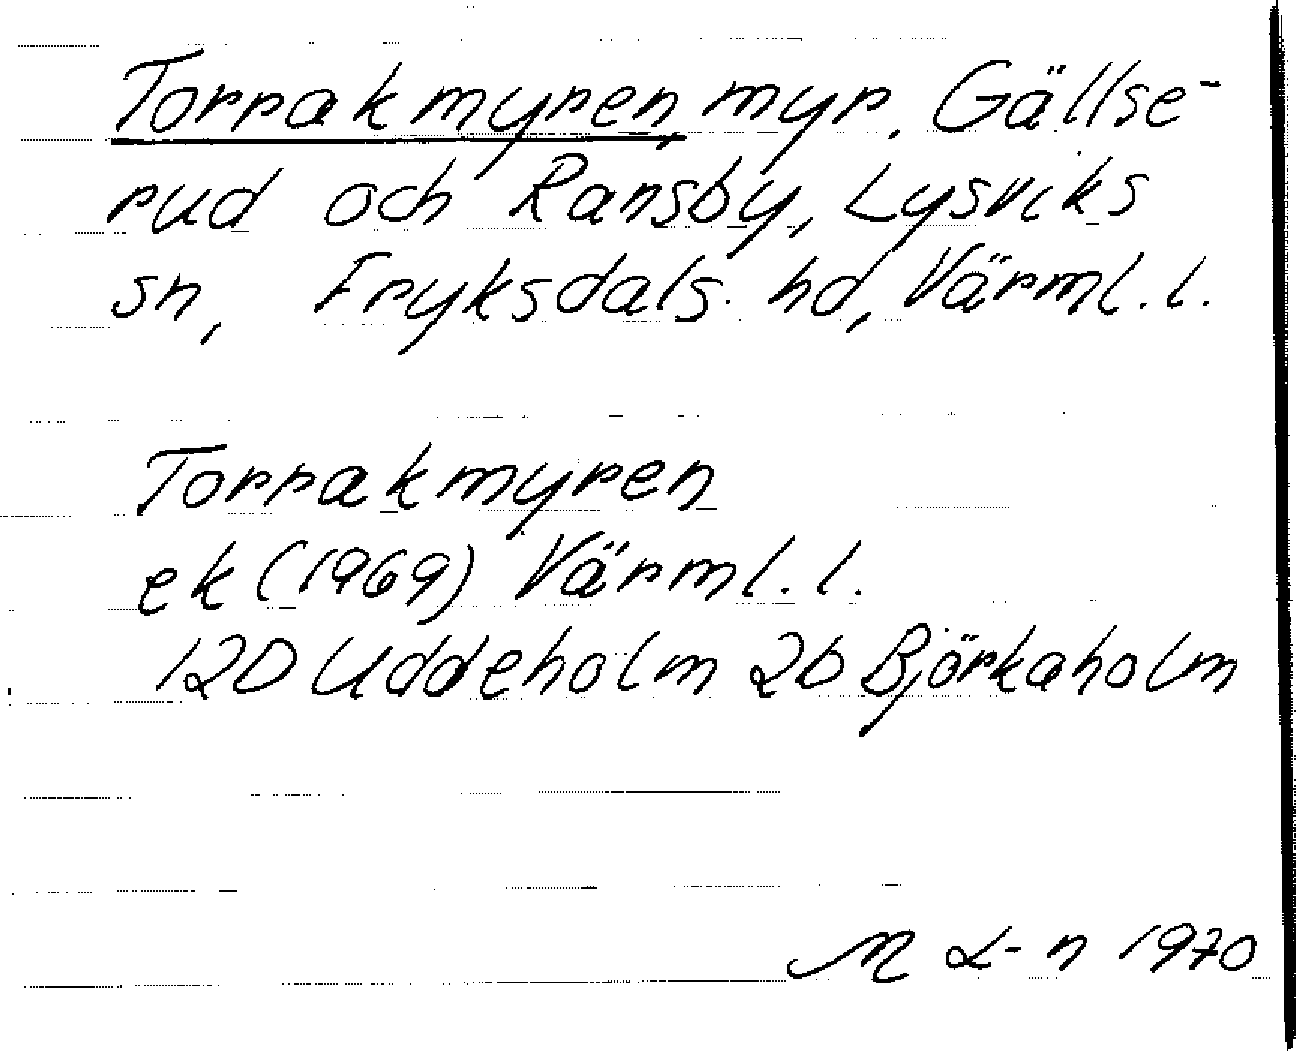 Torrakmyren, myr, Gällse-
rud och Ransby, Lysviks
sn, Fryksdals hd, Värml. l.
Torrakmyren
ek (1969) Värml. l.
12D Uddeholm 2b Björkaholm
M L-n 1970